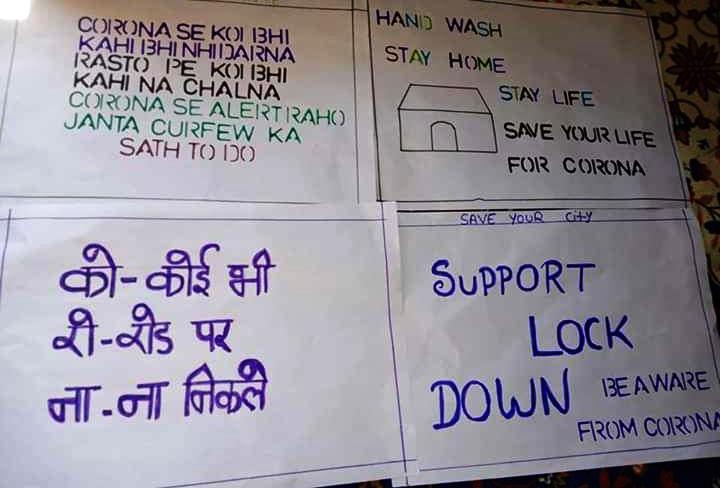 CORONA SE KOI BHI
KAHI BHI NHI DARNA
RASTO PE KOI BHI
KAHI NA CHALNA
CORONA SE ALERT RAHO
JANTA CURFEW KA
SATH TO DO
HAND WASH
STAY HOME
STAY LIFE
SAVE YOUR LIFE
FOR CORONA
को-कोई भी
रो-रोड पर
ना-ना निकले
SAVE YOUR City
SUPPORT
LOCK
DOWN
BE AWARE
FROM CORONA